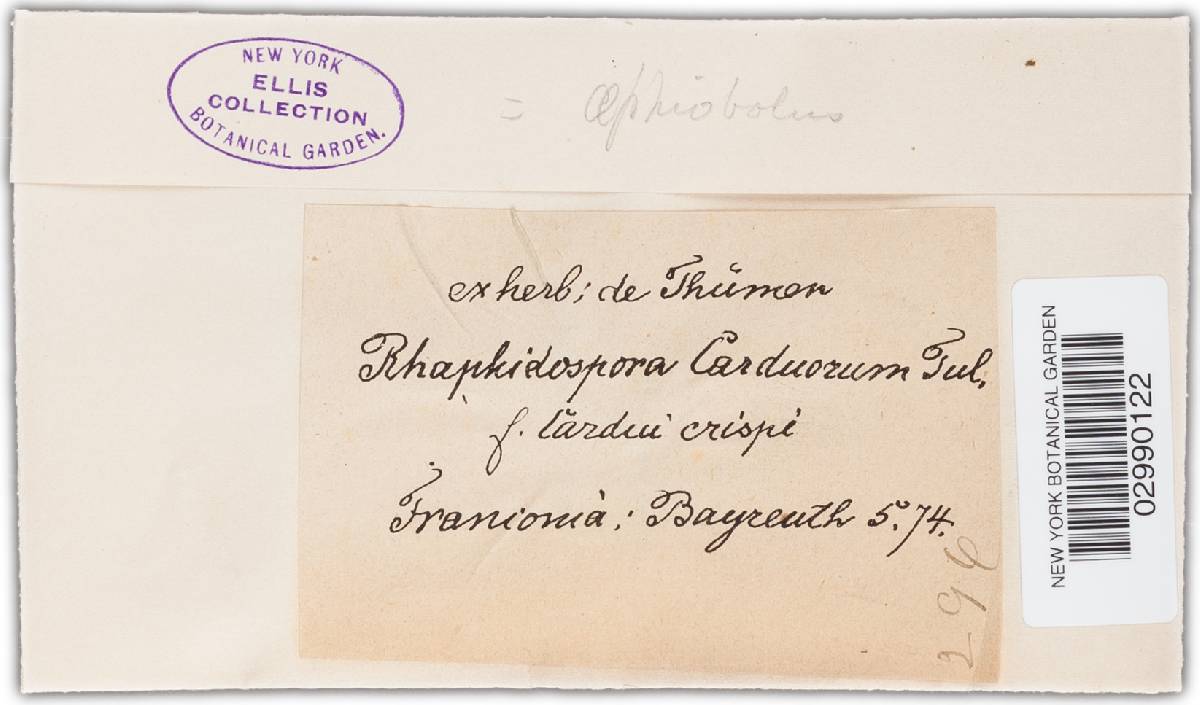 NEW YORK
ELLIS
COLLECTION
BOTANICAL GARDEN.
= Ophiobolus
ex herb; de Thümen
Rhaphidospora Carduorum Tul.
f. Cardui crispi
Franconia; Bayreuth 5.74.
296
NEW YORK BOTANICAL GARDEN
02990122